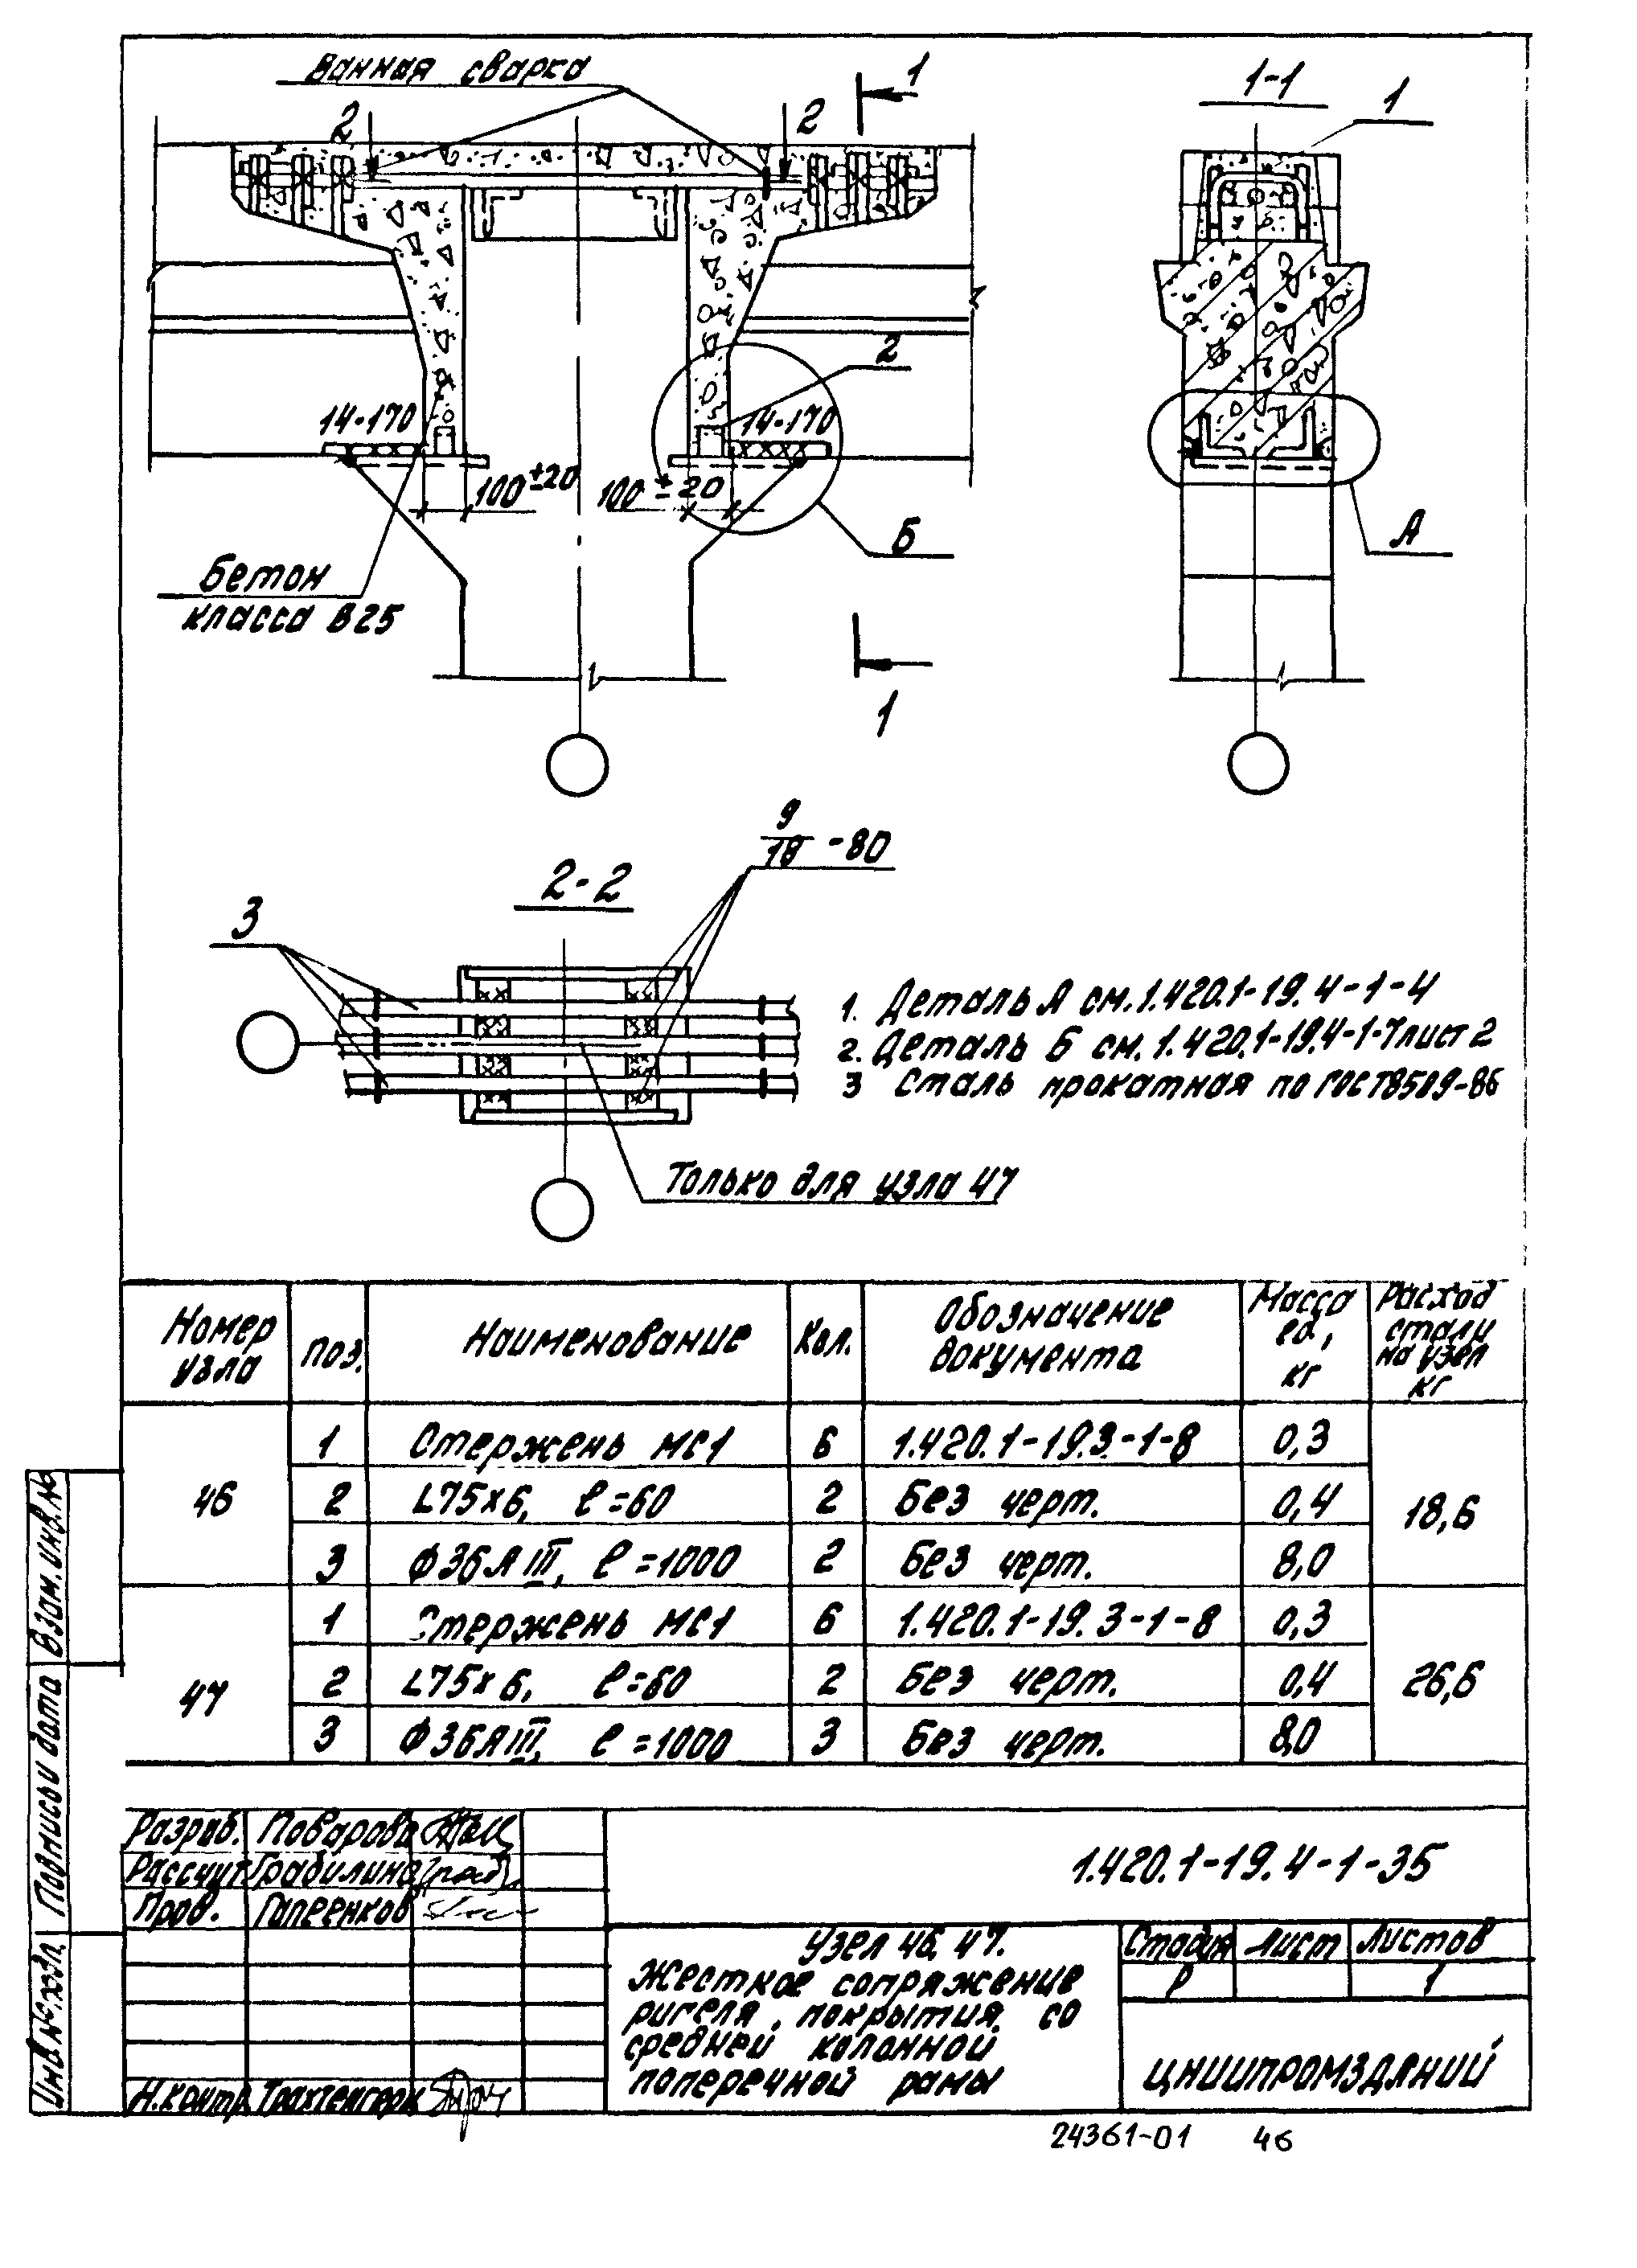 Ванная сварка
1
1-1
1
2
2
2
14-170
14-170
100±20
100±20
Б
А
Бетон
класса В25
1
9/18 -80
2-2
3
1. Деталь А см. 1.420.1-19.4-1-4
2. Деталь Б см. 1.420.1-19.4-1-7 лист 2
3 Сталь прокатная по ГОСТ 8509-86
Только для узла 47
Номер узла Поз. Наименование Кол. Обозначение документа Масса ед, кг Расход стали на узел кг
46
1 Стержень МС1 6 1.420.1-19.3-1-8 0,3
2 L75×6, ℓ=60 2 Без черт. 0,4
18,6
3 Ф36АIII, ℓ=1000 2 Без черт. 8,0
47
1 Стержень МС1 6 1.420.1-19.3-1-8 0,3
2 L75×6, ℓ=60 2 Без черт. 0,4
26,6
3 Ф36АIII, ℓ=1000 3 Без черт. 8,0
Разраб. Поварова
Рассчит Грабилина
Пров. Гапеенков
Н.контр. Трахтенгерц
1.420.1-19.4-1-35
Узел 46, 47.
Жесткое сопряжение
ригеля покрытия со
средней колонной
поперечной рамы
Стадия Лист Листов
Р 1
ЦНИИПРОМЗДАНИЙ
Инв.№ подл. Подпись и дата Взам.инв.№
24361-01 46